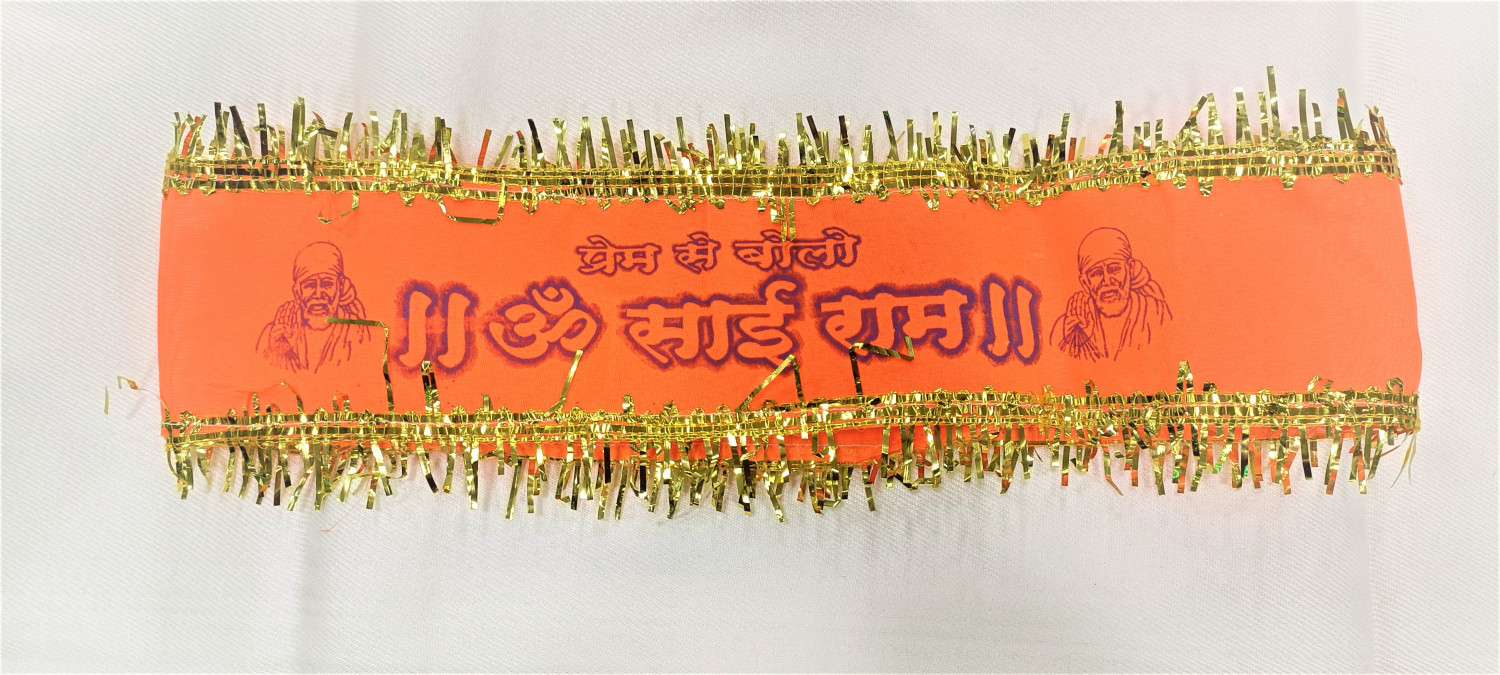 प्रेम से बोलो
।। ॐ साई राम ।।